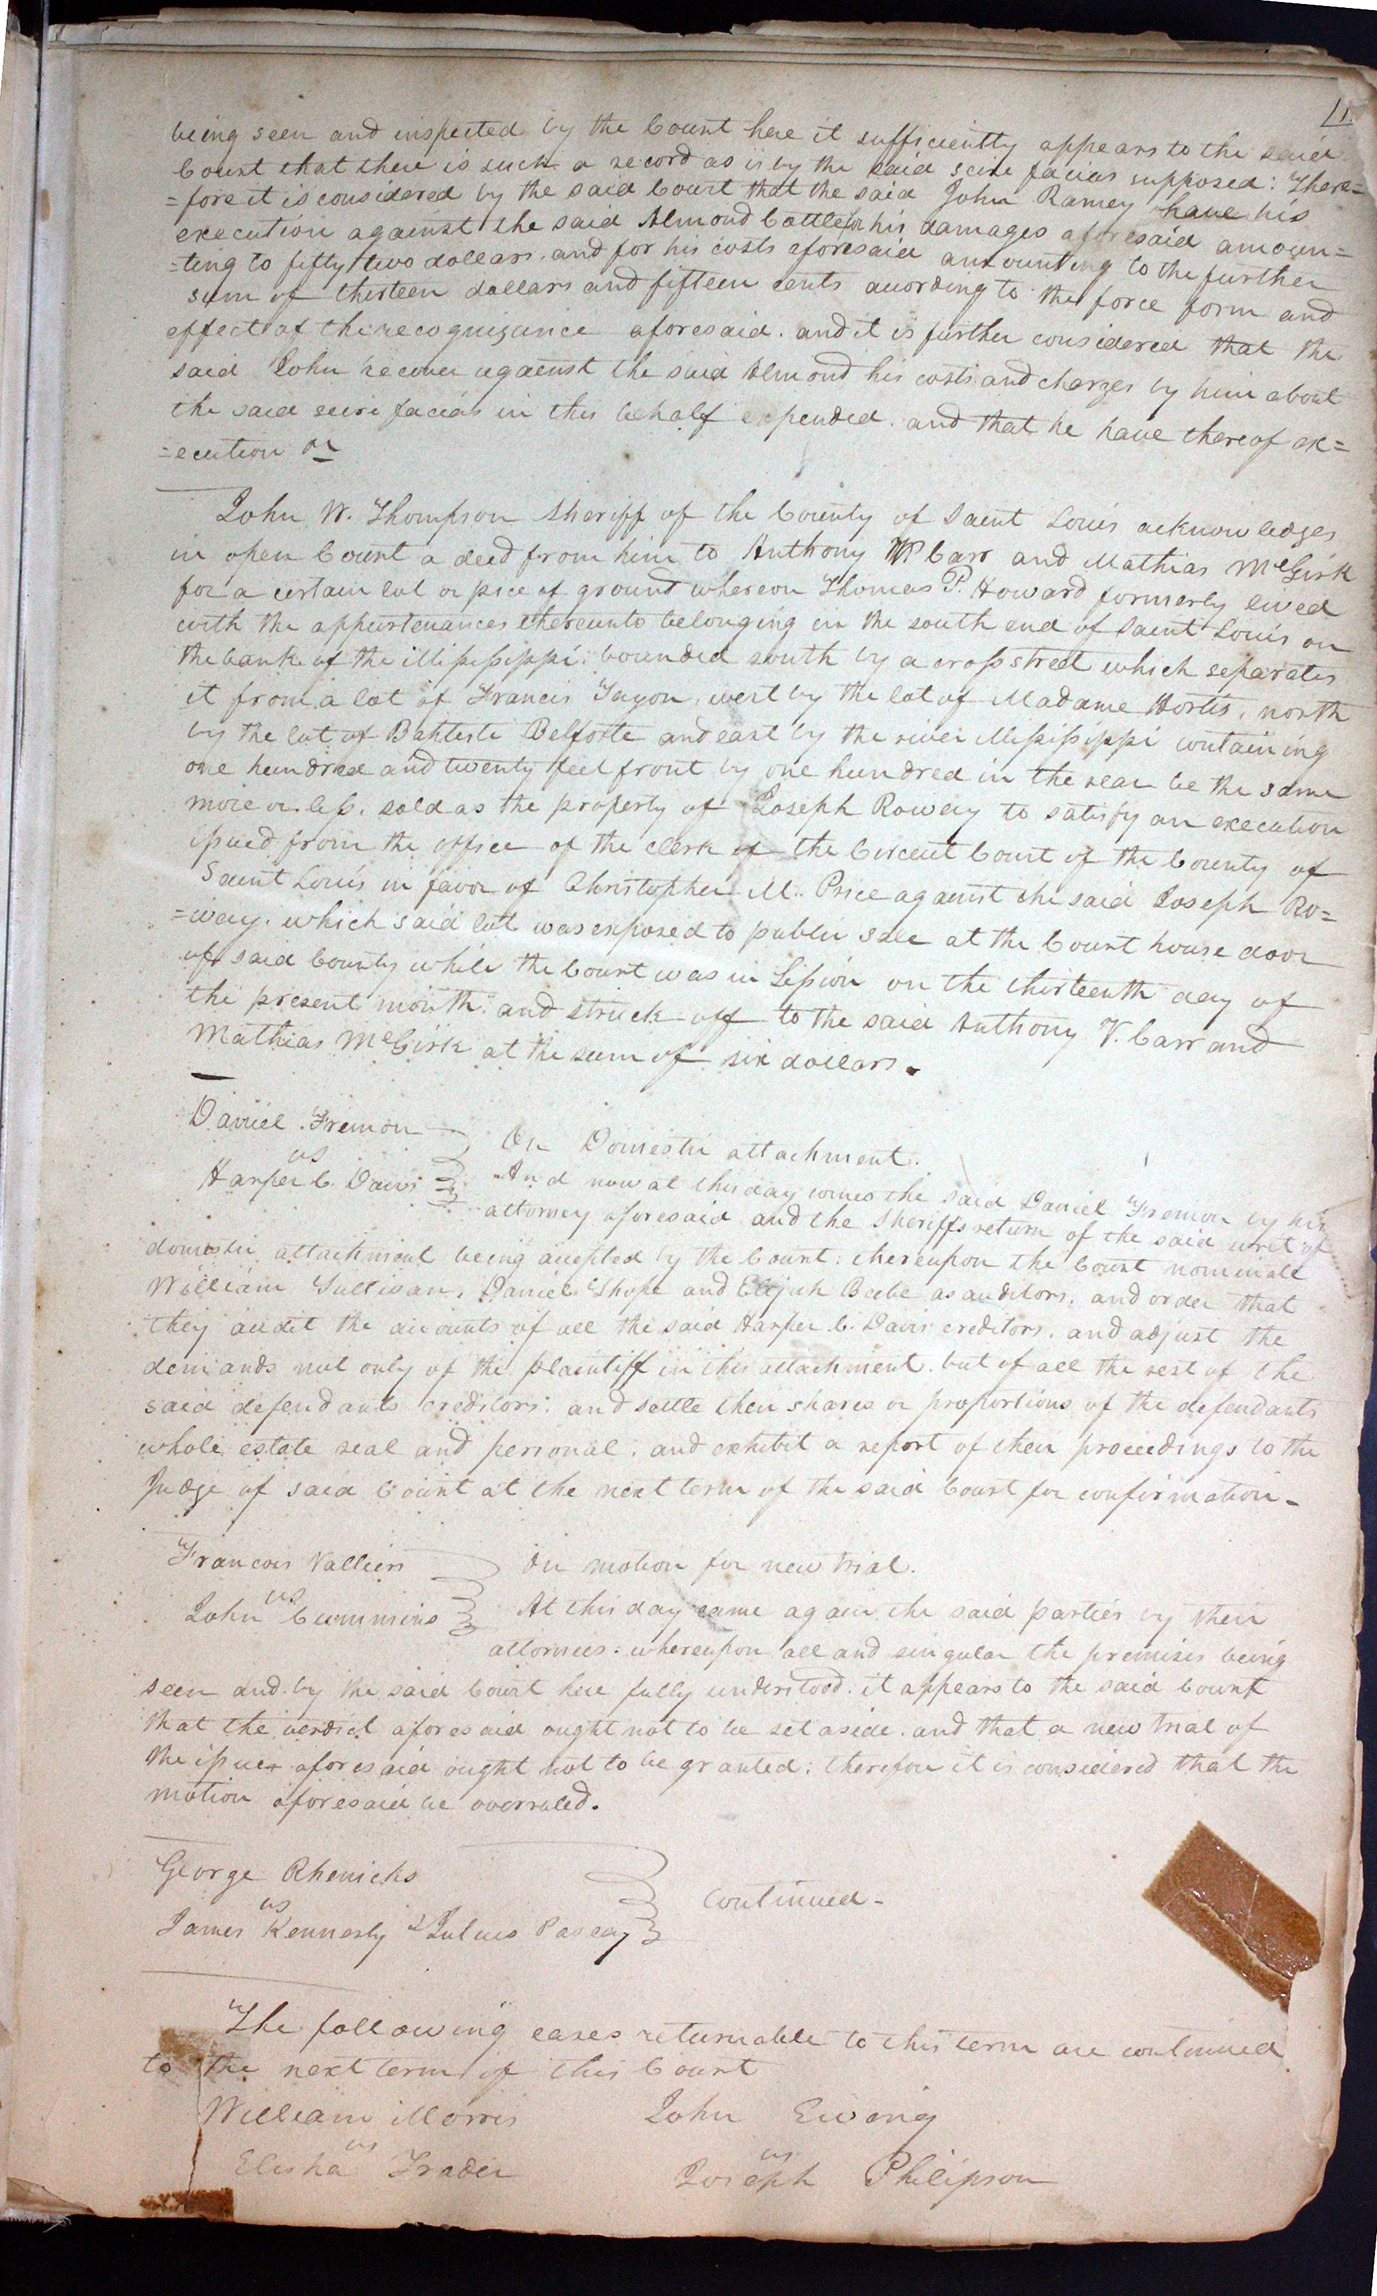 11.
being seen and inspected by the Court here it sufficiently appears to the said
Court that there is such a record as is by the said scire facias supposed: There=
=fore it is considered by the said Court that the said John Ramey have his
execution against the said Almond Cottle for his damages aforesaid amoun=
=ting to fifty two dollars. and for his costs aforesaid amounting to the further
sum of thirteen dollars and fifteen cents according to the force form and
effect of the recognizance aforesaid. and it is further considered that the
said John recover against the said Almond his costs and charges by him about
the said scire facias in this behalf expended. and that he have thereof ex=
=ecution &c
John W. Thompson Sheriff of the County of Saint Louis acknowledges
in open Court a deed from him to Anthony V Carr and Mathias McGirk
for a certain lot or piece of ground whereon Thomas P. Howard formerly lived
with the appurtenances thereunto belonging in the south end of Saint Louis on
the bank of the Mississippi: bounded south by a cross street which separates
it from a lot of Francis Tayon, west by the lot of Madame Hortis, north
by the lot of Baptiste Belforte and east by the river Mississippi containing
one hundred and twenty feet front by one hundred in the rear be the same
more or less. sold as the property of Joseph Roway to satisfy an execution
issued from the office of the clerk of the Circuit Court of the County of
Saint Louis in favor of Christopher M. Price against the said Joseph Ro=
=way. which said lot was exposed to public sale at the Court house door
of said County while the Court was in Session on the thirteenth day of
the present month. and struck off to the said Anthony V. Carr and
Mathias McGirk at the sum of six dollars.
Daniel Fremon
vs
Harper C. Davis
On Domestic attachment.
And now at this day comes the said Daniel Fremon by his
attorney aforesaid and the Sheriffs return of the said writ of
domestic attachment being accepted by the Court: thereupon the Court nominate
William Sullivan, Daniel Shope and Elijah Beebe as auditors, and order that
they audit the accounts of all the said Harper C. Davis creditors. and adjust the
demands not only of the plaintiff in this attachment. but of all the rest of the
said defendants creditors: and settle their shares or proportions of the defendants
whole estate real and personal. and exhibit a report of their proceedings to the
Judge of said Court at the next term of the said Court for confirmation-
Francois Valliers
vs
John Cummins
On motion for new trial.
At this day came again the said parties by their
attornies. whereupon all and singular the premises being
seen and by the said Court here fully understood. it appears to the said Court
that the verdict aforesaid ought not to be set aside. and that a new trial of
the issues aforesaid ought not to be granted: therefore it is considered that the
motion aforesaid be overruled.
George Rhenicks
vs
James Kennerly & Julius
continued-
The following cases returnable to this term are continued
to the next term of this Court
William Morris
vs
Elisha Frader
John Ewing
vs
Joseph Philipson